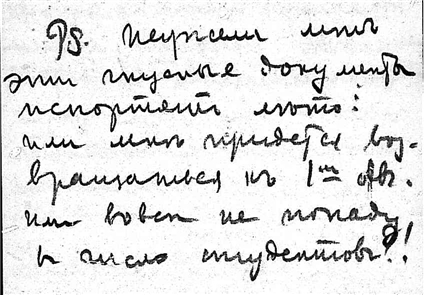 Ps. Неужели мнѣ
эти гнусные документы
испортятъ лѣто:
или мнѣ придется воз-
вращаться къ 1му авг.
или вовсе не попаду
в число студентовъ?!